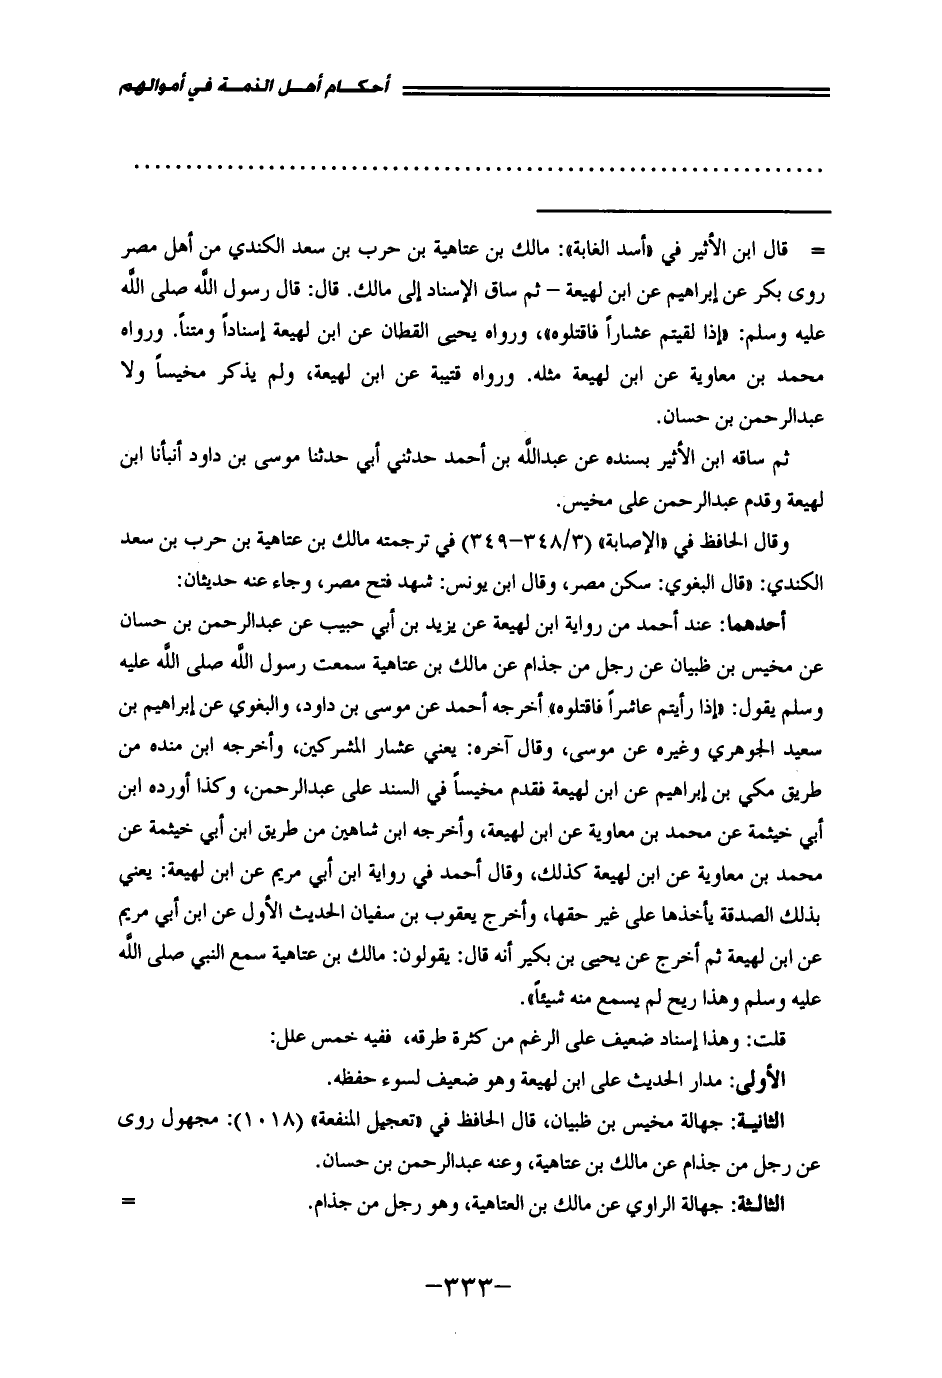 أحكام أهل الذمة في أموالهم
= قال ابن الأثير في «أسد الغابة»: مالك بن عتاهية بن حرب بن سعد الكندي من أهل مصر
روى بكر عن إبراهيم عن ابن لهيعة – ثم ساق الإسناد إلى مالك. قال: قال رسول اللَّه صلى اللَّه
عليه وسلم: «إذا لقيتم عشاراً فاقتلوه»، ورواه يحيى القطان عن ابن لهيعة إسناداً ومتناً. ورواه
محمد بن معاوية عن ابن لهيعة مثله. ورواه قتيبة عن ابن لهيعة، ولم يذكر مخيساً ولا
عبدالرحمن بن حسان.
ثم ساقه ابن الأثير بسنده عن عبداللَّه بن أحمد حدثني أبي حدثنا موسى بن داود أنبأنا ابن
لهيعة وقدم عبدالرحمن على مخيس.
وقال الحافظ في «الإصابة» (٣/٣٤٨-٣٤٩) في ترجمته مالك بن عتاهية بن حرب بن سعد
الكندي: «قال البغوي: سكن مصر، وقال ابن يونس: شهد فتح مصر، وجاء عنه حديثان:
أحدهما: عند أحمد من رواية ابن لهيعة عن يزيد بن أبي حبيب عن عبدالرحمن بن حسان
عن مخيس بن ظبيان عن رجل من جذام عن مالك بن عتاهية سمعت رسول اللَّه صلى اللَّه عليه
وسلم يقول: «إذا رأيتم عاشراً فاقتلوه» أخرجه أحمد عن موسى بن داود، والبغوي عن إبراهيم بن
سعيد الجوهري وغيره عن موسى، وقال آخره: يعني عشار المشركين، وأخرجه ابن منده من
طريق مكي بن إبراهيم عن ابن لهيعة فقدم مخيساً في السند على عبدالرحمن، وكذا أورده ابن
أبي خيثمة عن محمد بن معاوية عن ابن لهيعة، وأخرجه ابن شاهين من طريق ابن أبي خيثمة عن
محمد بن معاوية عن ابن لهيعة كذلك، وقال أحمد في رواية ابن أبي مريم عن ابن لهيعة: يعني
بذلك الصدقة يأخذها على غير حقها، وأخرج يعقوب بن سفيان الحديث الأول عن ابن أبي مريم
عن ابن لهيعة ثم أخرج عن يحيى بن بكير أنه قال: يقولون: مالك بن عتاهية سمع النبي صلى اللَّه
عليه وسلم وهذا ريح لم يسمع منه شيئاً».
قلت: وهذا إسناد ضعيف على الرغم من كثرة طرقه، ففيه خمس علل:
الأولى: مدار الحديث على ابن لهيعة وهو ضعيف لسوء حفظه.
الثانية: جهالة مخيس بن ظبيان، قال الحافظ في «تعجيل المنفعة» (١٠١٨): مجهول روى
عن رجل من جذام عن مالك بن عتاهية، وعنه عبدالرحمن بن حسان.
الثالثة: جهالة الراوي عن مالك بن العتاهية، وهو رجل من جذام. =
-٣٣٣-